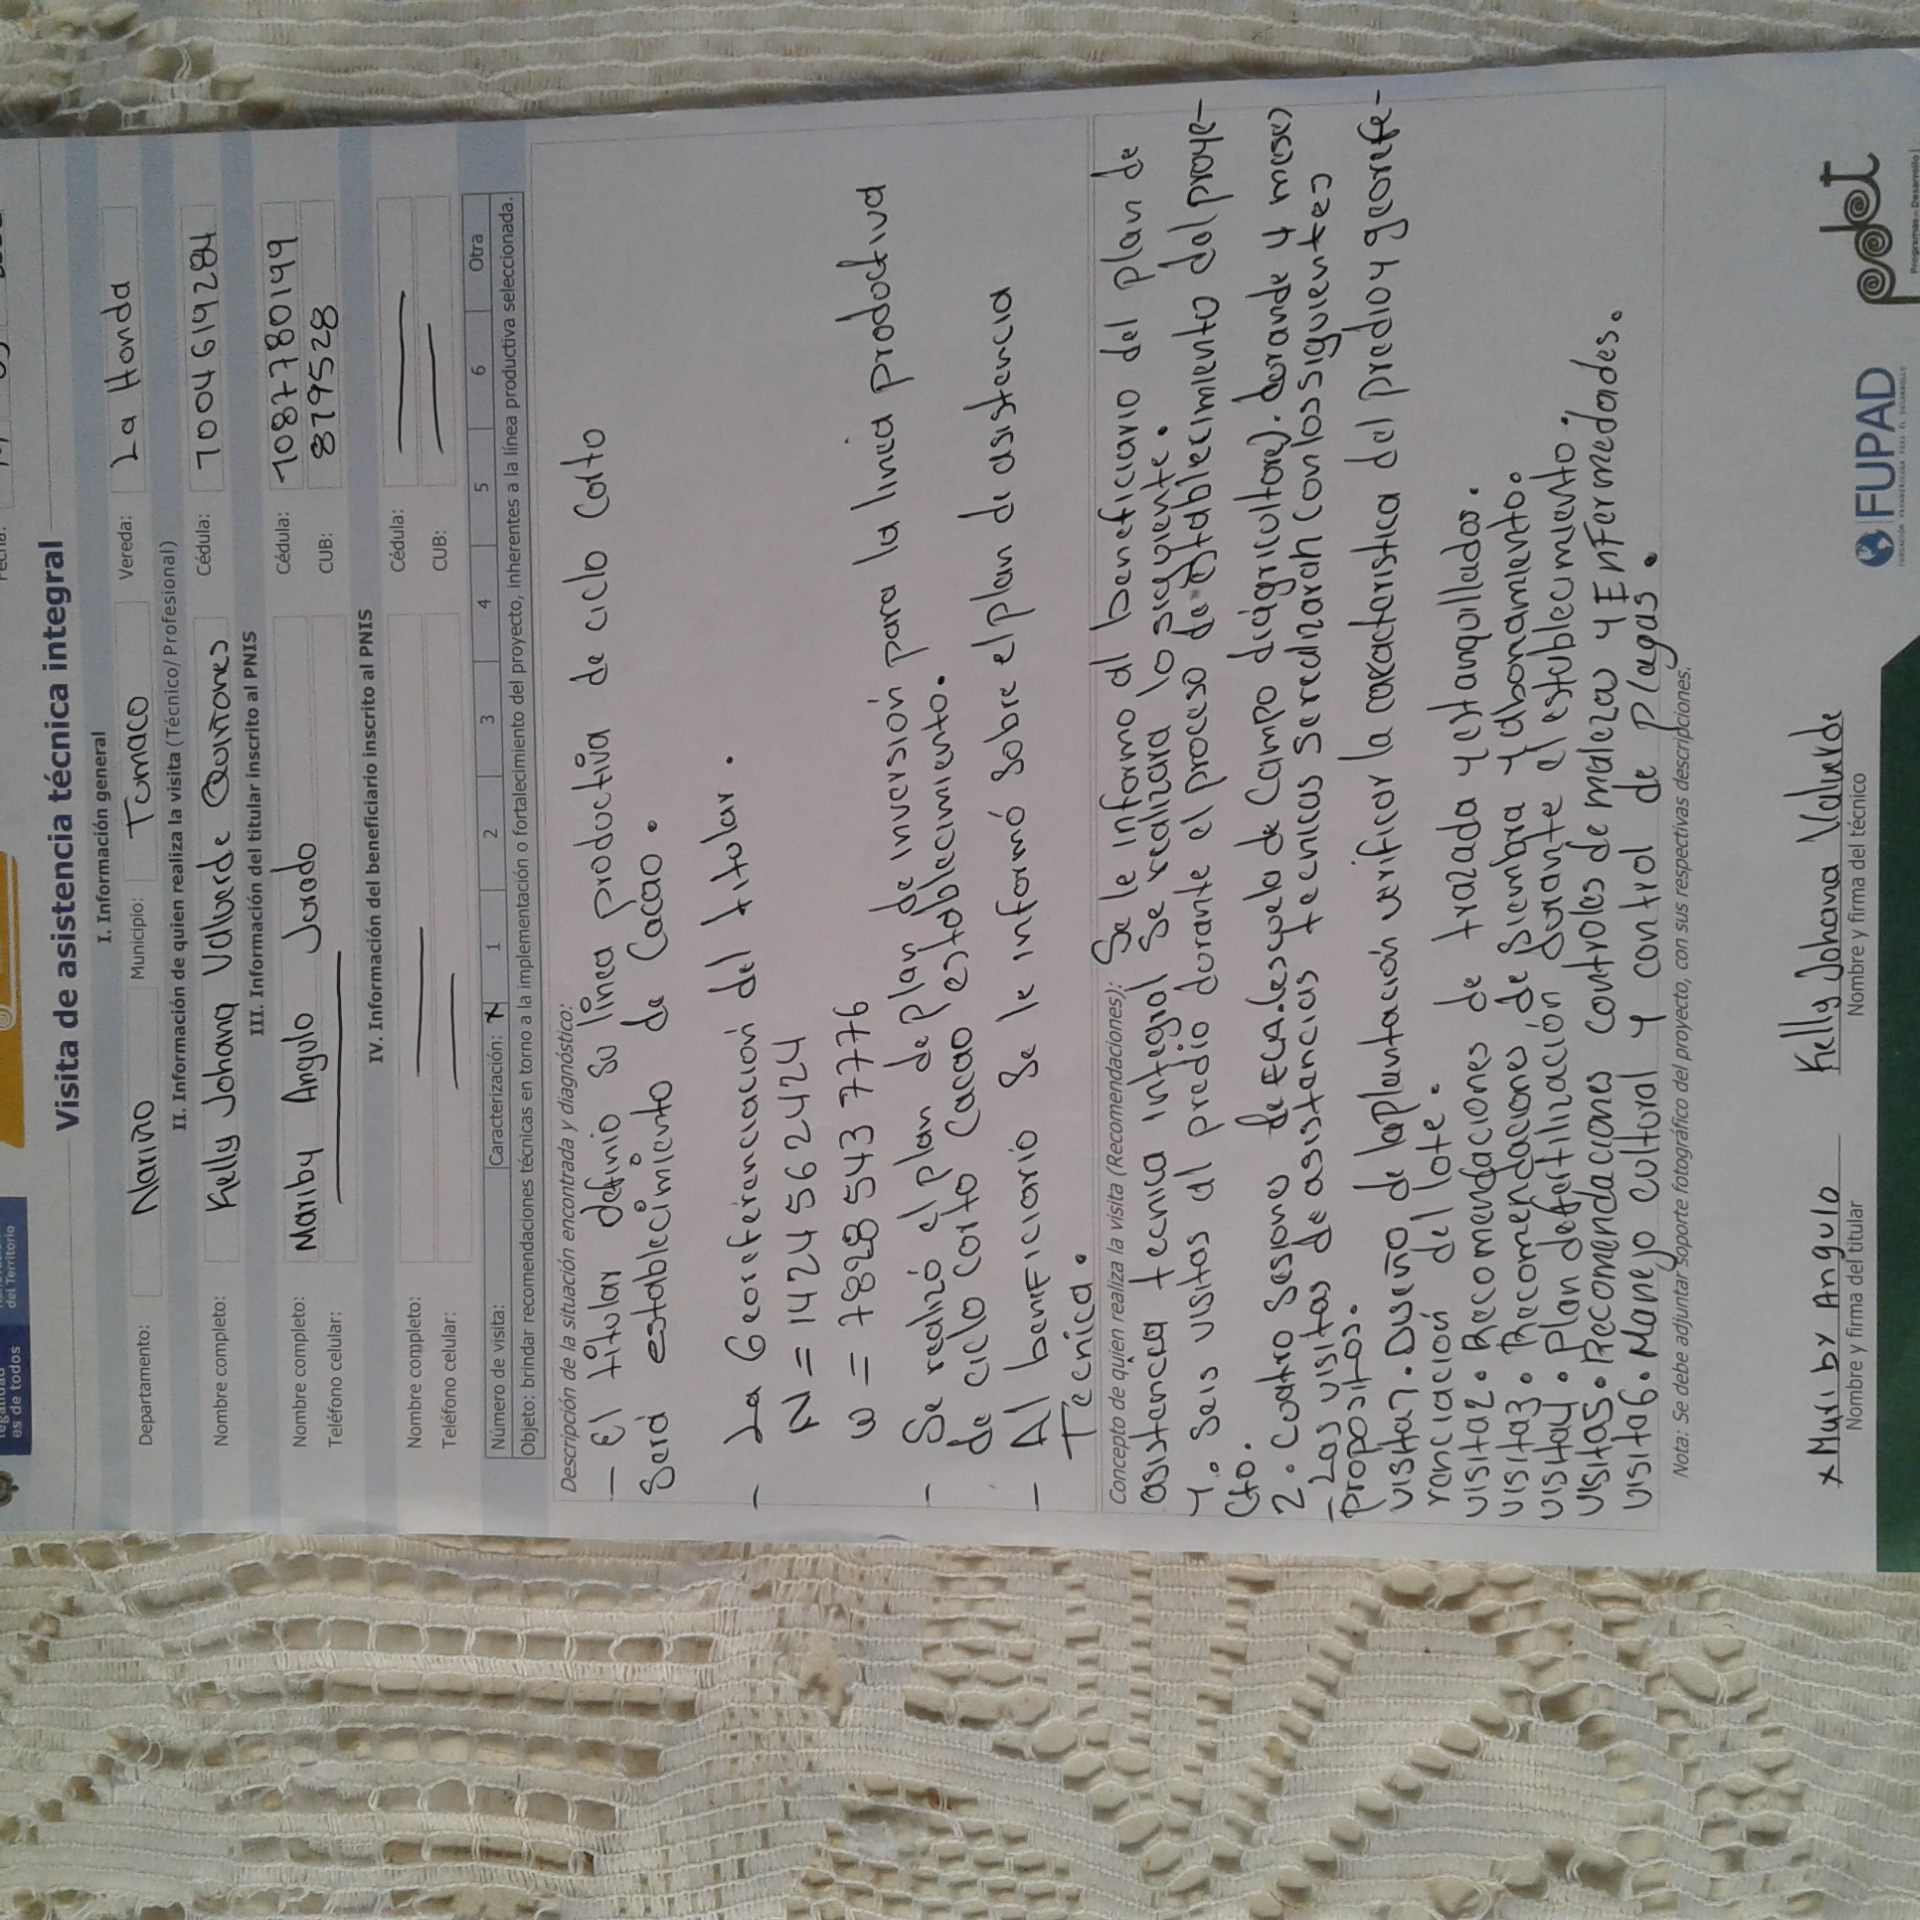 es de todos
del Territorio
Visita de asistencia técnica integral
I. Información general
Departamento: Nariño Municipio: Tumaco Vereda: La Honda
II. Información de quien realiza la visita (Técnico/Profesional)
Nombre completo: Kelly Johana Valverde Quiñones Cédula: 1004619284
III. Información del titular inscrito al PNIS
Nombre completo: Mariby Angulo Jurado Cédula: 1087780199
Teléfono celular: CUB: 8795528
IV. Información del beneficiario inscrito al PNIS
Nombre completo: Cédula:
Teléfono celular: CUB:
Número de visita: Caracterización: X 1 2 3 4 5 6 Otra
Objeto: brindar recomendaciones técnicas en torno a la implementación o fortalecimiento del proyecto, inherentes a la línea productiva seleccionada.
Descripción de la situación encontrada y diagnóstico:
- El titular definio su linea productiva de ciclo corto
Será establecimiento de Cacao.
- La Georeferenciación del titular.
N = 1424562424
w = 7828543 7776
- Se realizó el plan de plan de inversión para la linea productiva
de ciclo corto Cacao establecimiento.
- Al beneficiario se le informó sobre el plan de asistencia
Tecnica.
Concepto de quien realiza la visita (Recomendaciones): Se le informo al beneficiario del plan de
asistencia tecnica integral Se realizara lo siguiente.
1. Seis visitas al predio durante el proceso de establecimiento del proye-
cto.
2. Cuatro Sesiones de ECA. (escuela de Campo diagricultores). durande 4 meses
- Las visitas de asistencias tecnicas se realizarah con los siguientes
propositos.
visita 1. Diseño de laplantación verificar la caracteristica del predio y georefe-
renciación del lote.
visita 2. Recomendaciones de trazada y estanquillados.
visita 3. Recomendaciones de siembra y abonamiento.
visita 4. Plan defertilización durante el establecimiento.
visita 5. Recomendaciones controles de malezas y Enfermedades.
visita 6. Manejo cultural y control de Plagas.
Nota: Se debe adjuntar soporte fotográfico del proyecto, con sus respectivas descripciones.
x Mariby Angulo Kelly Johana Valverde
Nombre y firma del titular Nombre y firma del técnico
FUPAD
pdet